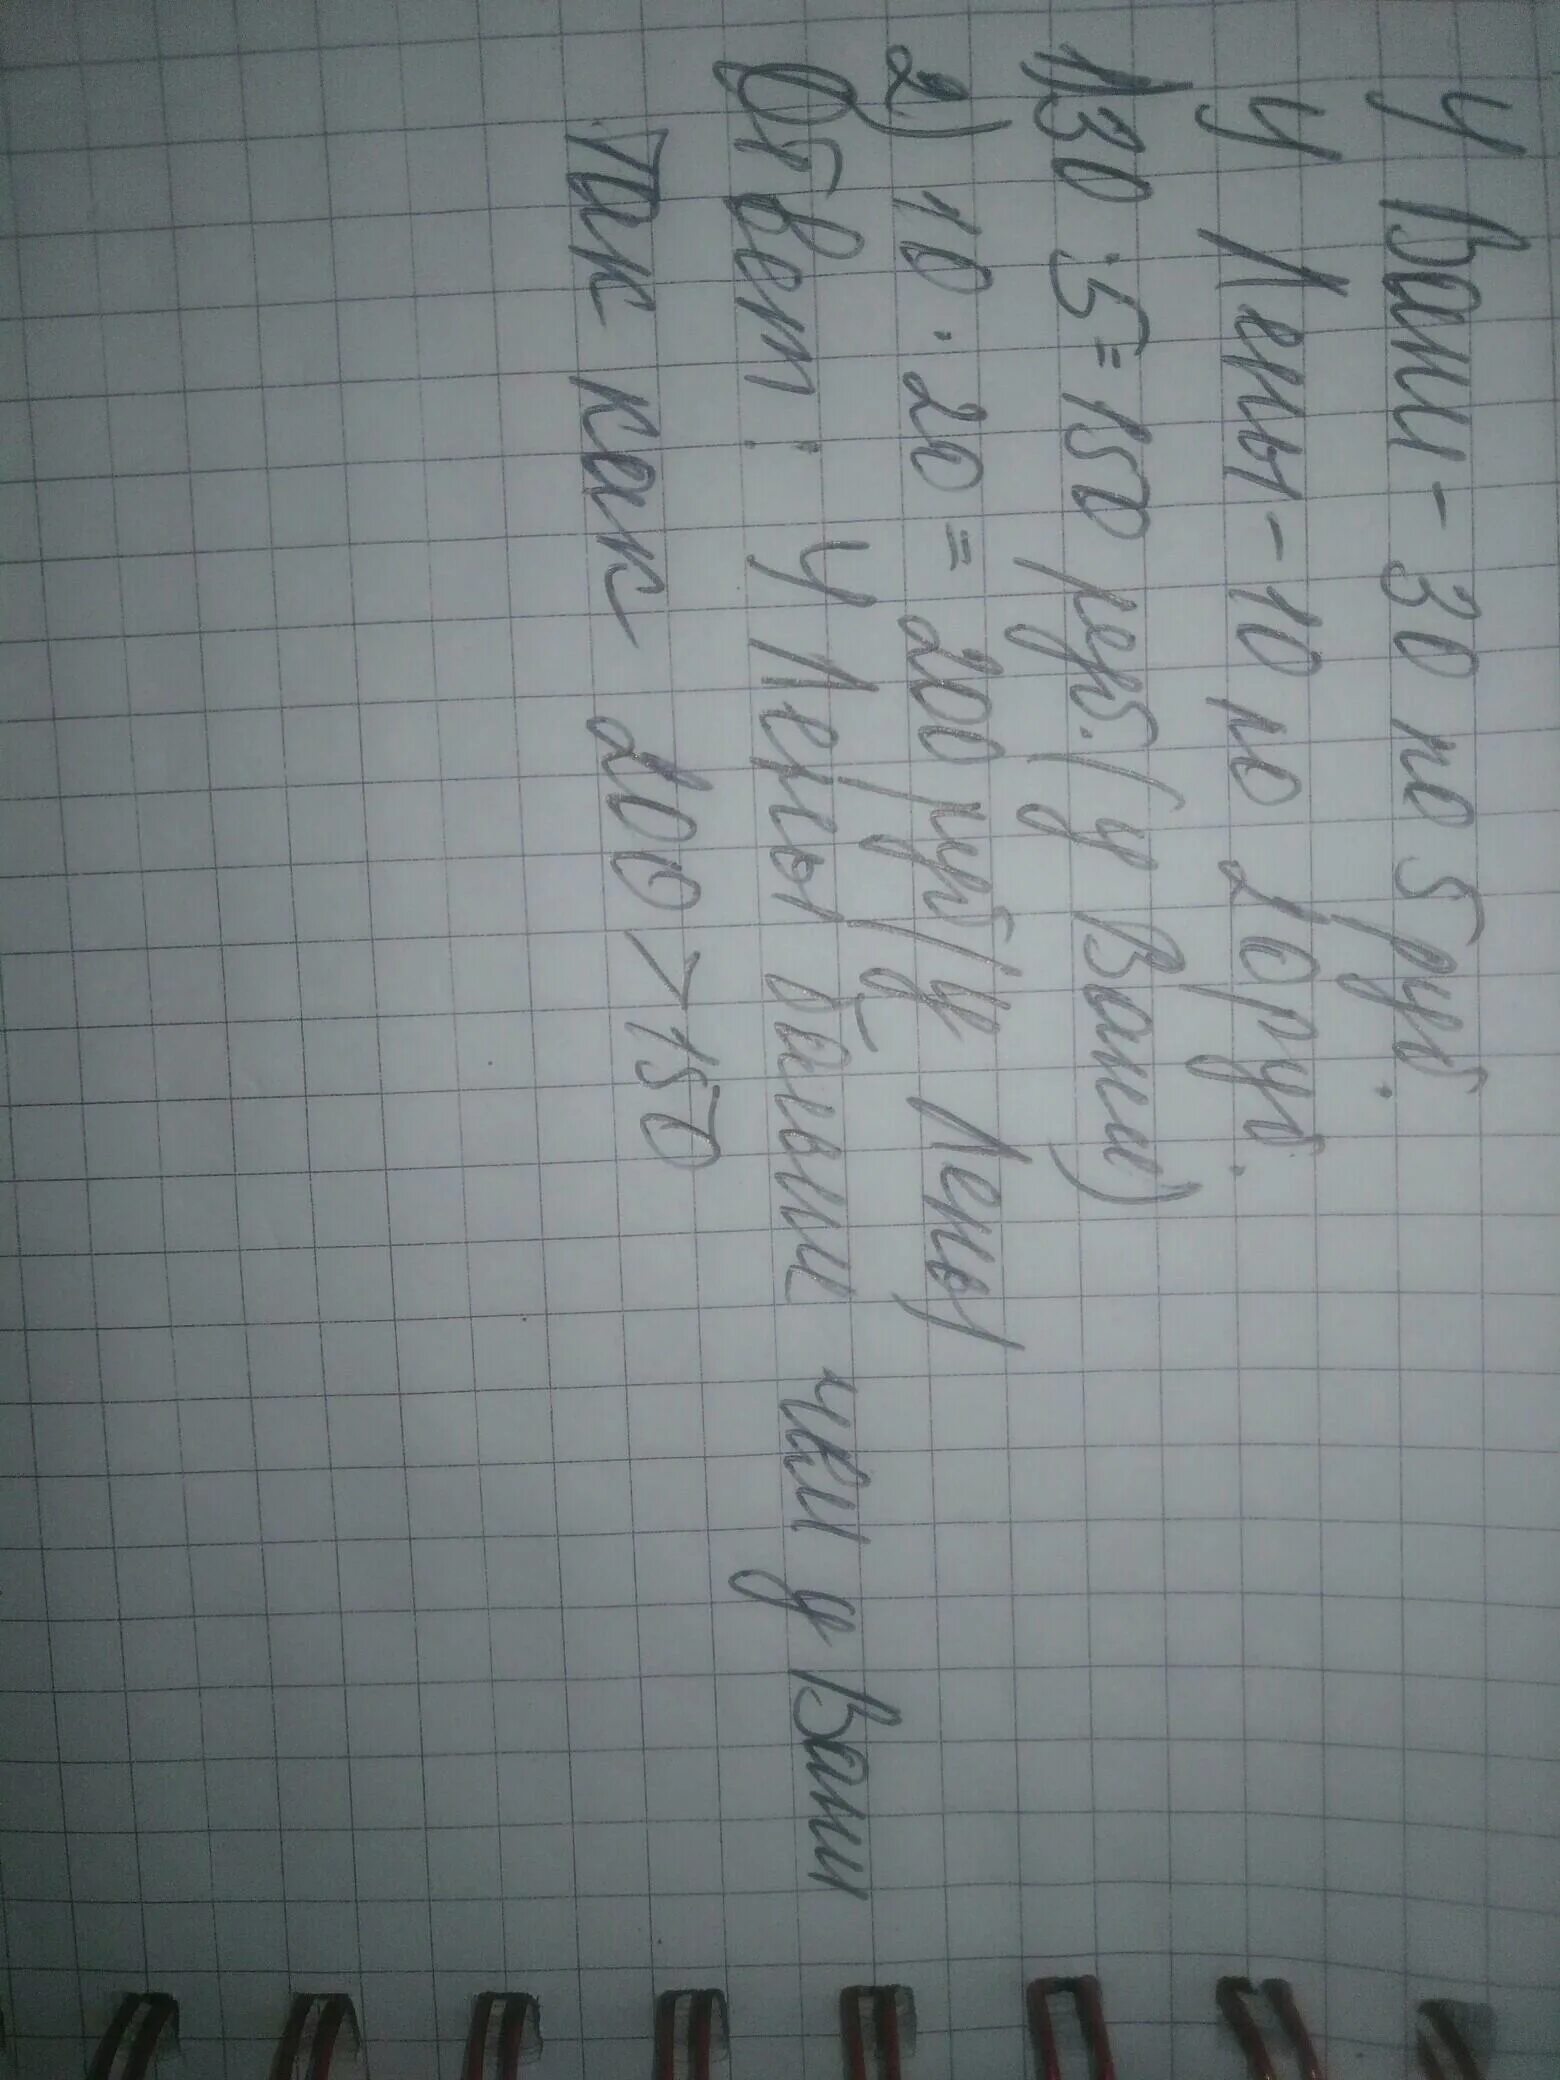 У Вани - 30 по 5 руб.
У Лены - 10 по 20 руб.
1) 30 · 5 = 150 руб. (у Вани)
2) 10 · 20 = 200 руб (у Лены)
Ответ: У Лены больше чем у Вани
так как 200 > 150